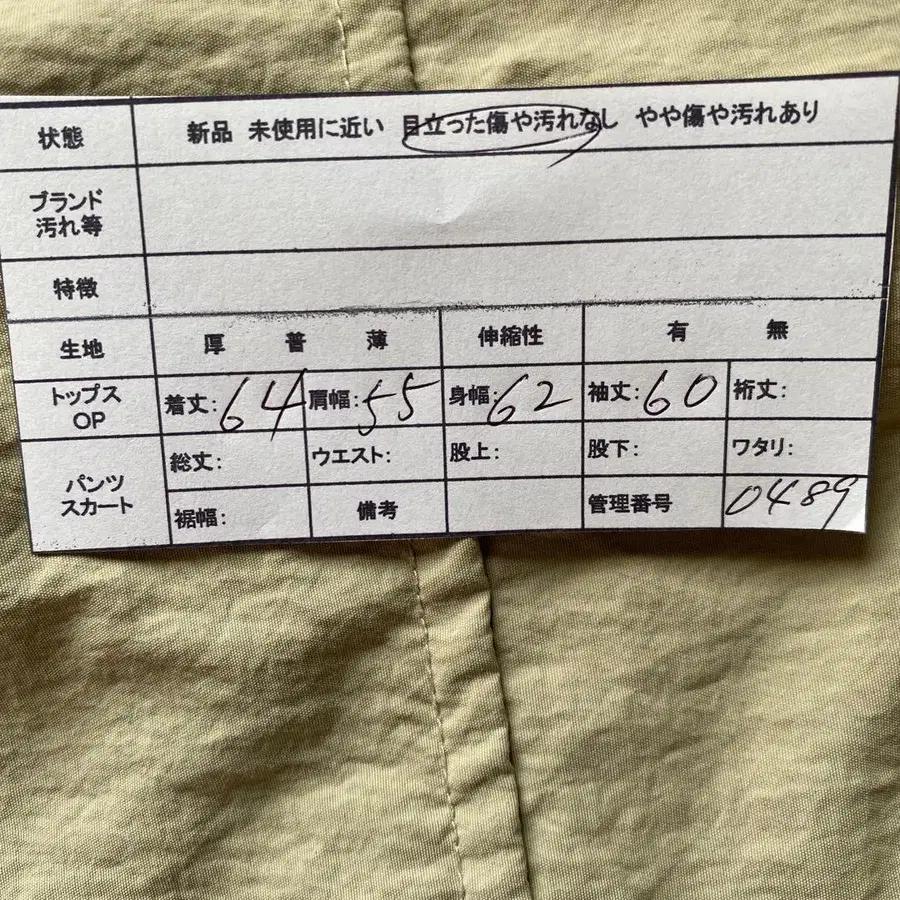 状態 新品 未使用に近い 目立った傷や汚れなし やや傷や汚れあり
ブランド
汚れ等
特徴
生地 厚 普 薄 伸縮性 有 無
トップス
OP
着丈: 64 肩幅: 55 身幅: 62 袖丈: 60 裄丈:
パンツ
スカート
総丈: ウエスト: 股上: 股下: ワタリ:
裾幅: 備考 管理番号 0489